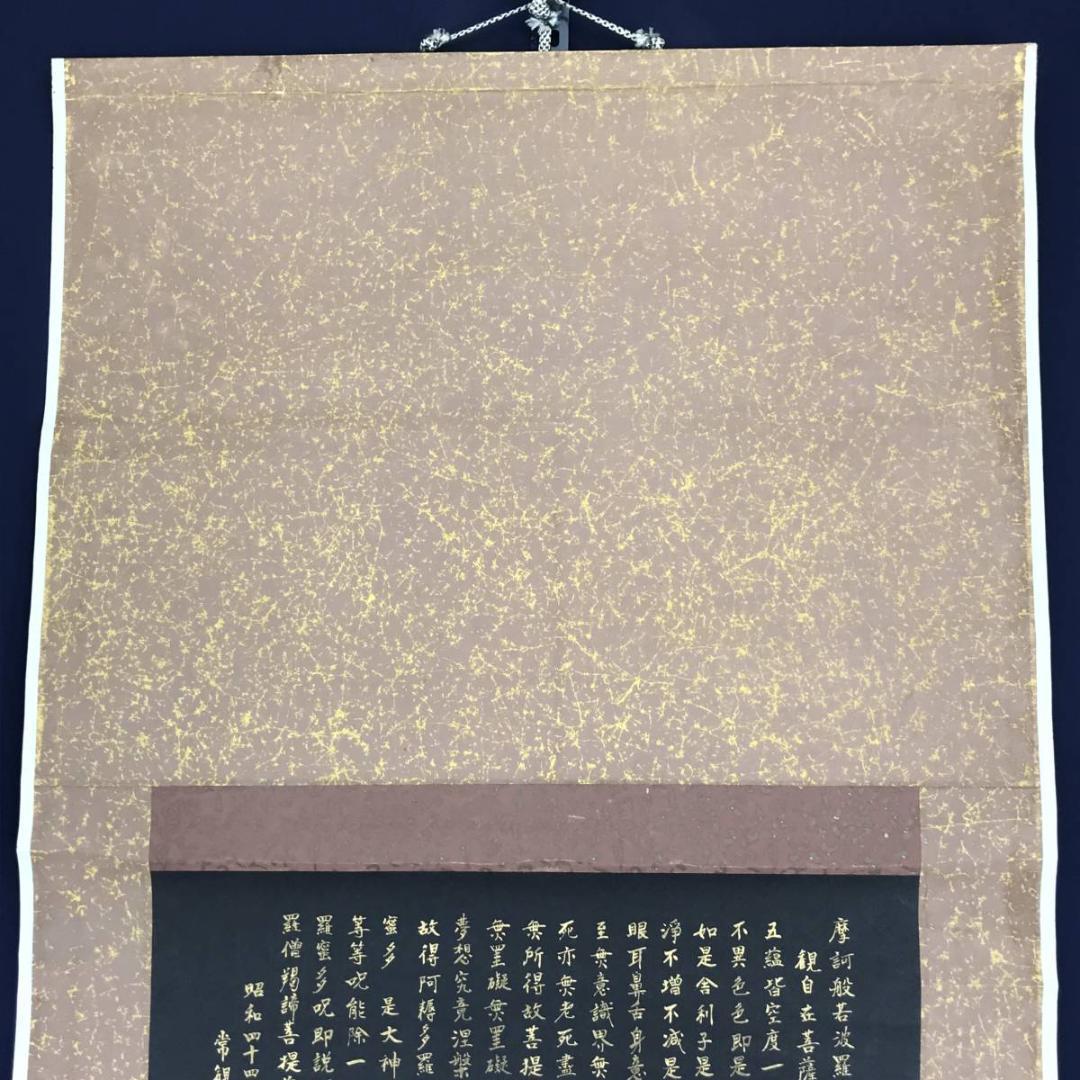 摩訶般若波羅
觀自在菩薩
五蘊皆空度一
不異色色即是
如是舍利子是
淨不增不減是
眼耳鼻舌身意
至無意識界無
死亦無老死盡
無所得故菩提
無罣礙無罣礙
夢想究竟涅槃
故得阿耨多羅
蜜多 是大神
等等呪能除一
羅蜜多呪即説
羅僧羯諦菩提
昭和四十四
常観